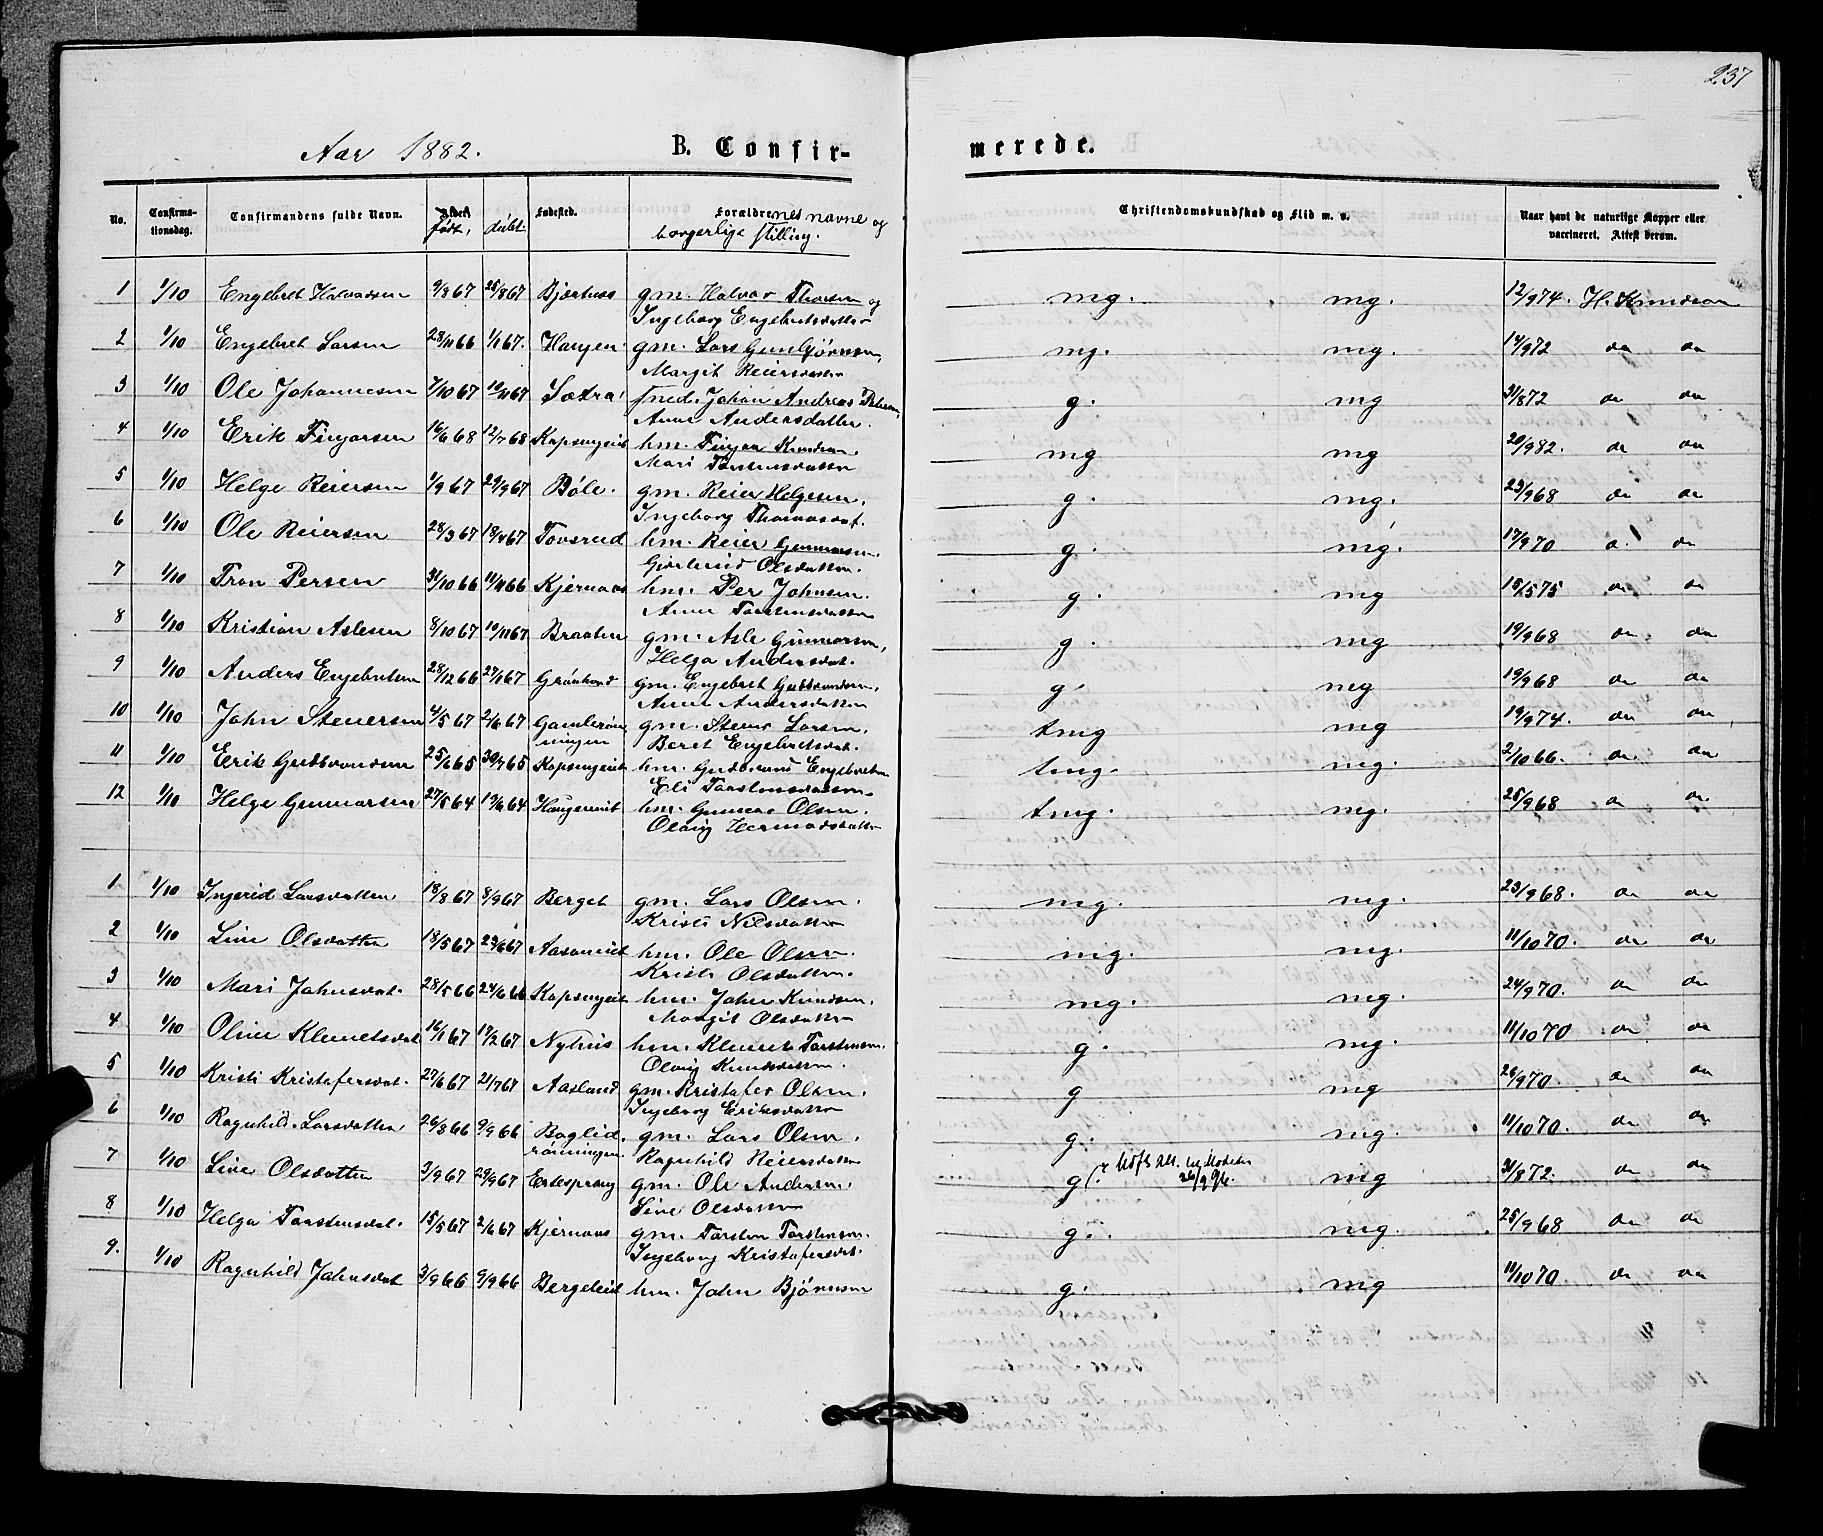 237
Aar 1882. B. Confir- merede.
No. Confirma-tionsdag. Confirmandens fulde Navn. født, døbt Fødested. Forældrenes navne og borgerlige stilling. Christendomskundskab og Flid m. v. Naar havt de naturlige Kopper eller vaccineret. Attest derom.
1 1/10 Engebret Halvorsen 9/8 67 25/8 67 Bjærtnes gm. Halvor Thorsen og mg. mg. 12/9 74. H. Knudson
Ingeborg Engebretsdatter
2 1/10 Engebret Larsen 28/11 66 1/1 67. Haugen gm. Lars Gunbjørnsen, mg. mg. 14/9 72 do do
Margit Reiersdatter
3 1/10 Ole Johannesen 7/10 67 10/11 67 Sætra fned. Johan Andreas g. mg 31/8 72 do do
Anne Andersdatter.
4 1/10 Erik Fingarsen 16/6 68 12/7 68 Kopsengeiet hm. Fingar Knudsen. mg mg 20/9 82. do do
Mari Torstensdatter
5 1/10 Helge Reiersen 1/9 67 29/9 67 Bøle. gm. Reier Helgesen, g. mg. 23/9 68 do do
Ingeborg Thomasdat.
6 1/10 Ole Reiersen 28/3 67 18/4 67 Tovsrud hm. Reier Gunnarsen. g. mg. 17/9 70 do do
Gjertrud Olsdatter.
7 1/10 Tron Persen 31/10 66 11/11 66 Kjernaas hm. Per Johnsen. g. mg 15/5 75 do do
Anne Torstensdatter
8 1/10 Kristian Aslesen 8/10 67 10/11 67 Braaten gm. Asle Gunnarsen, g. mg 19/9 68 do do
Helga Andersdat.
9 1/10 Anders Engebretsen 28/12 66 27/1 67 gm. Engebret Gudbrandsen. g. mg 19/9 68 do do
Anne Andersdatter
10 1/10 John Steversen 4/5 67 2/6 67 gm. Stever Larsen. tmg mg 19/9 74. do do
Beret Engebretsdat.
11 1/10 Erik Gudbrandsen 25/6 65 30/7 65 Kopsengeiet hm. Gudbrand Engebretsen tmg. mg. 2/10 66. do do
Eli Torstensdatter
12 1/10 Helge Gunnarsen 27/5 64 19/6 64 Haugeeiet hm. Gunnar Olsen. tmg. mg. 25/9 68 do do
Olaug Hermodsdatter
1 1/10 Ingerid Larsdatter 18/8 67 8/9 67 Berget gm. Lars Olsen. mg. mg. 23/9 68. do do
Kristi Nilsdatter
2 1/10 Live Olsdatter 18/5 67 23/6 67 Aasaneiet hm. Ole Olsen. mg. mg. 11/10 70. do do
Kristi Olsdatter.
3 1/10 Mari Johnsdat. 28/5 66 24/6 66 Kopsengeiet hm. John Knudsen. mg. mg. 24/9 70. do do
Margit Olsdatter
4 1/10 Oline Klemetsdat 16/1 67 17/2 67 Nyhus hm. Klemet Torstensen. g. mg. 11/10 70 do do
Olaug Knudsdatter.
5 1/10 Kristi Kristofersdat. 27/6 67 21/7 67 Aasland gm. Kristofer Olsen. g mg 26/9 70. do do
Ingeborg Eriksdatter
6 1/10 Ragnhild Larsdatter 26/8 66 9/9 66 Boglid- gm. Lars Olsen. g. mg. 11/10 70. do do
rønningen. Ragnhild Reiersdatter
7 1/10 Live Olsdatter 3/9 67 29/9 67 Ertesprang gm. Ole Andersen. g mg 31/8 72. do do
Live Olsdatter
8 1/10 Helga Torstensdat. 15/5 67 2/6 67 Kjernaas gm. Torsten Torstensen. g. mg. 25/9 68 do do
Ingeborg Kristofersdat.
9. 1/10 Ragnhild Johnsdat 3/9 66 9/9 66 Bergeeiet hm. John Bjørnsen g. mg 11/10 70. do do